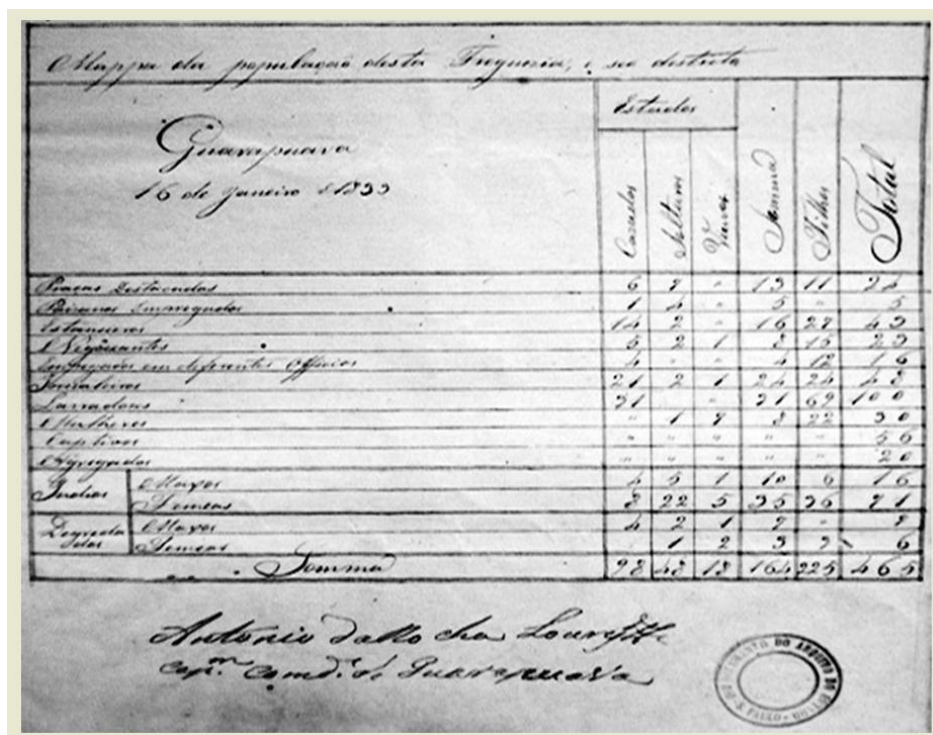 Mappa da população desta Freguezia, e seo destricto
Estados
Guarapuava
16 de Janeiro d 1833
Casados Solteiros Viuvos Somma Filhos Total
Praças Destacadas 6 7 " 13 11 24
Paizanos Empregados 1 4 " 5 " 5
Estancieros 14 2 " 16 27 43
Negociantes 5 2 1 8 15 23
Empregados em diferentes Officios 4 " " 4 12 16
Jornaleiros 21 2 1 24 24 48
Lavradores 31 " 31 69 100
Mulheres " 1 7 8 22 30
Captivos " " " " " 56
Agregados " " " " " 20
Indios Maxos 4 5 1 10 6 16
Femeas 8 22 5 35 36 71
Degrada Maxos 4 2 1 7 " 7
dos Femeas 1 2 3 3 6
Somma 98 48 18 164 225 465
Antonio da Rocha
Capm. Comde. de Guarapuava
DO ARQUIVO DO ESTADO
S. PAULO